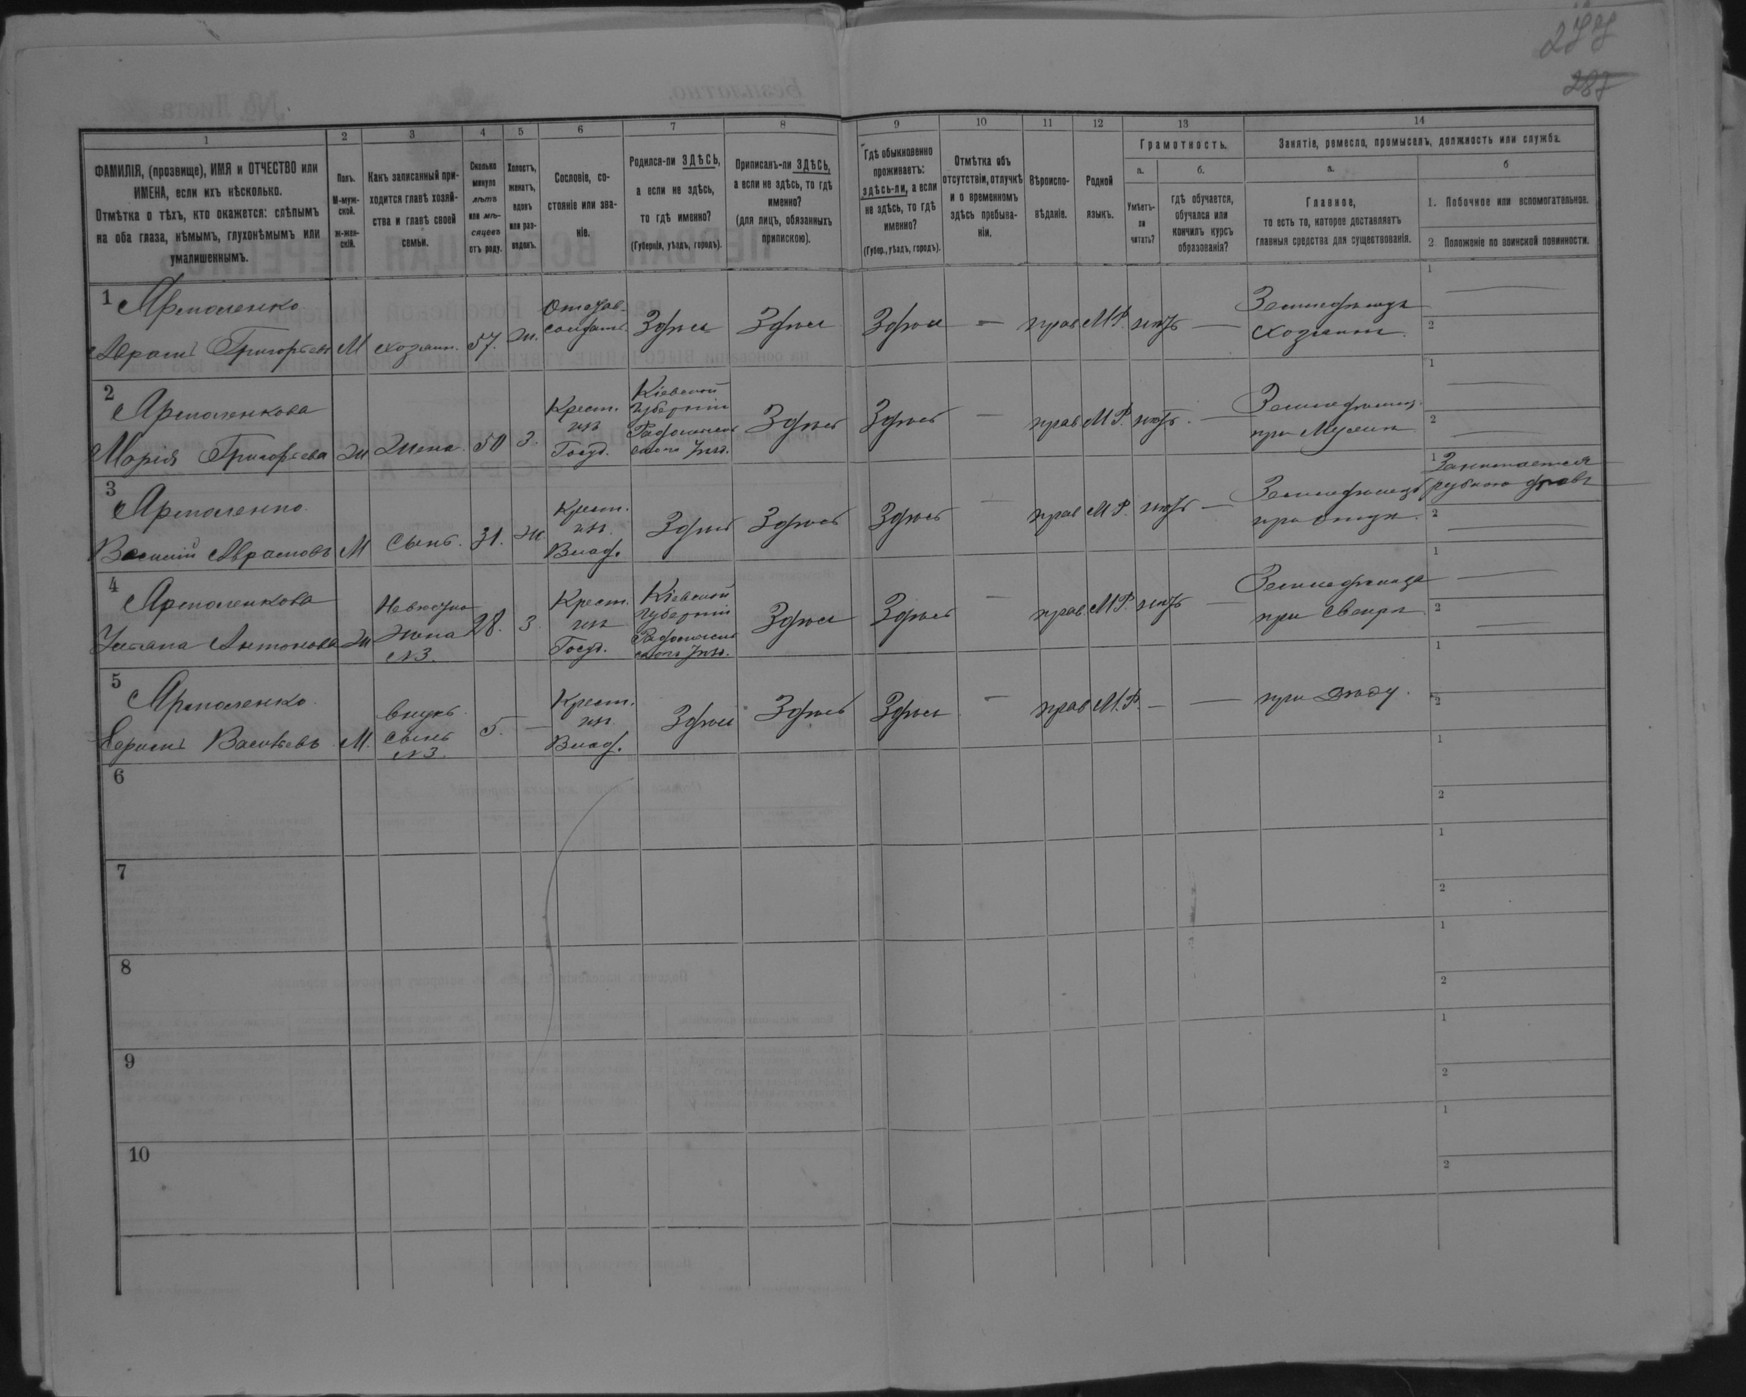 277
287
1
2
3
4
5
6
7
8
9
10
11
12
13
14
ФАМИЛІЯ, (прозвище), ИМЯ и ОТЧЕСТВО или
ИМЕНА, если ихъ нѣсколько.
Отмѣтка о тѣхъ, кто окажется: слѣпымъ
на оба глаза, нѣмымъ, глухонѣмымъ или
умалишеннымъ.
Полъ.
М-муж-
ской.
Ж-жен-
скій.
Какъ записанный при-
ходится главѣ хозяй-
ства и главѣ своей
семьи.
Сколько
минуло
лѣтъ
или мѣ-
сяцевъ
отъ роду.
Холостъ,
женатъ,
вдовъ
или раз-
веденъ.
Сословіе, со-
стояніе или зва-
ніе.
Родился-ли ЗДѢСЬ,
а если не здѣсь,
то гдѣ именно?
(Губернія, уѣздъ, городъ).
Приписанъ-ли ЗДѢСЬ,
а если не здѣсь, то гдѣ
именно?
(для лицъ, обязанныхъ
припискою).
Гдѣ обыкновенно
проживаетъ:
здѣсь-ли, а если
не здѣсь, то гдѣ
именно?
(Губер., уѣздъ, городъ).
Отмѣтка объ
отсутствіи, отлучкѣ
и о временномъ
здѣсь пребыва-
ніи.
Вѣроиспо-
вѣданіе.
Родной
языкъ.
Грамотность.
а.
Умѣетъ-
ли
читать?
б.
гдѣ обучается,
обучался или
кончилъ курсъ
образованія?
Занятіе, ремесло, промыселъ, должность или служба.
а.
Главное,
то есть то, которое доставляетъ
главныя средства для существованія.
б
1. Побочное или вспомогательное.
2. Положеніе по воинской повинности.
1
Ярмоленко
Аврамъ Григорьевъ М хозяин. 57. Ж. Отстав. солдатъ Здѣсь Здѣсь Здѣсь — прав М.Р. нѣтъ —
Земледѣлецъ
хозяинъ.
1
2
2
Ярмоленкова
Марія Григорьева Ж Жена 50 З. Крест. изъ Госуд.
Кіевской
Губерніи
Радомысль
скаго Уѣзд.
Здѣсь Здѣсь — прав М.Р. нѣтъ. —
при Мужѣ
1
2
3
Ярмоленко
Василій Аврамовъ М Сынъ. 31. Ж Крест. изъ Влад. Здѣсь Здѣсь Здѣсь — прав М.Р. нѣтъ —
Земледѣлецъ
при отцѣ.
1 Занимается
рубкою дровъ
2
4
Ярмоленкова
Ульяна Антонова Ж Невѣстка
Жена
№3.
28. З. Крест. изъ Госуд.
Кіевской
Губерніи
Радомысль
скаго Уѣзд.
Здѣсь Здѣсь — прав М.Р. нѣтъ —
при Свекрѣ
1
2
5
Ярмоленко.
Василіевъ М. Внукъ
Сынъ
№3.
5. — Крест. изъ Влад. Здѣсь Здѣсь Здѣсь — прав М.Р. — —
при Дѣду.
1
2
6
1
2
7
1
2
8
1
2
9
1
2
10
1
2